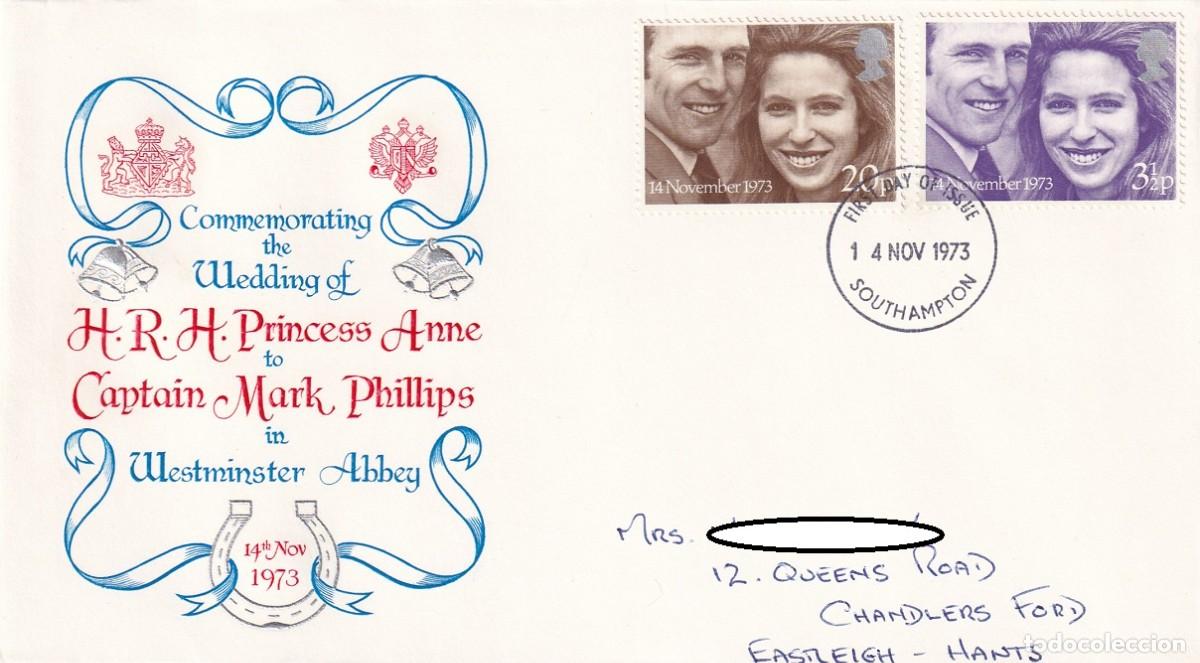 Commemorating
the
Wedding of
H.R.H. Princess Anne
to
Captain Mark Phillips
in
Westminster Abbey
14th Nov
1973
14 November 1973
20p
14 November 1973
3½p
FIRST DAY OF ISSUE
14 NOV 1973
SOUTHAMPTON
MRS.
12. QUEENS ROAD
CHANDLERS FORD
EASTLEIGH - HANTS
todocoleccion